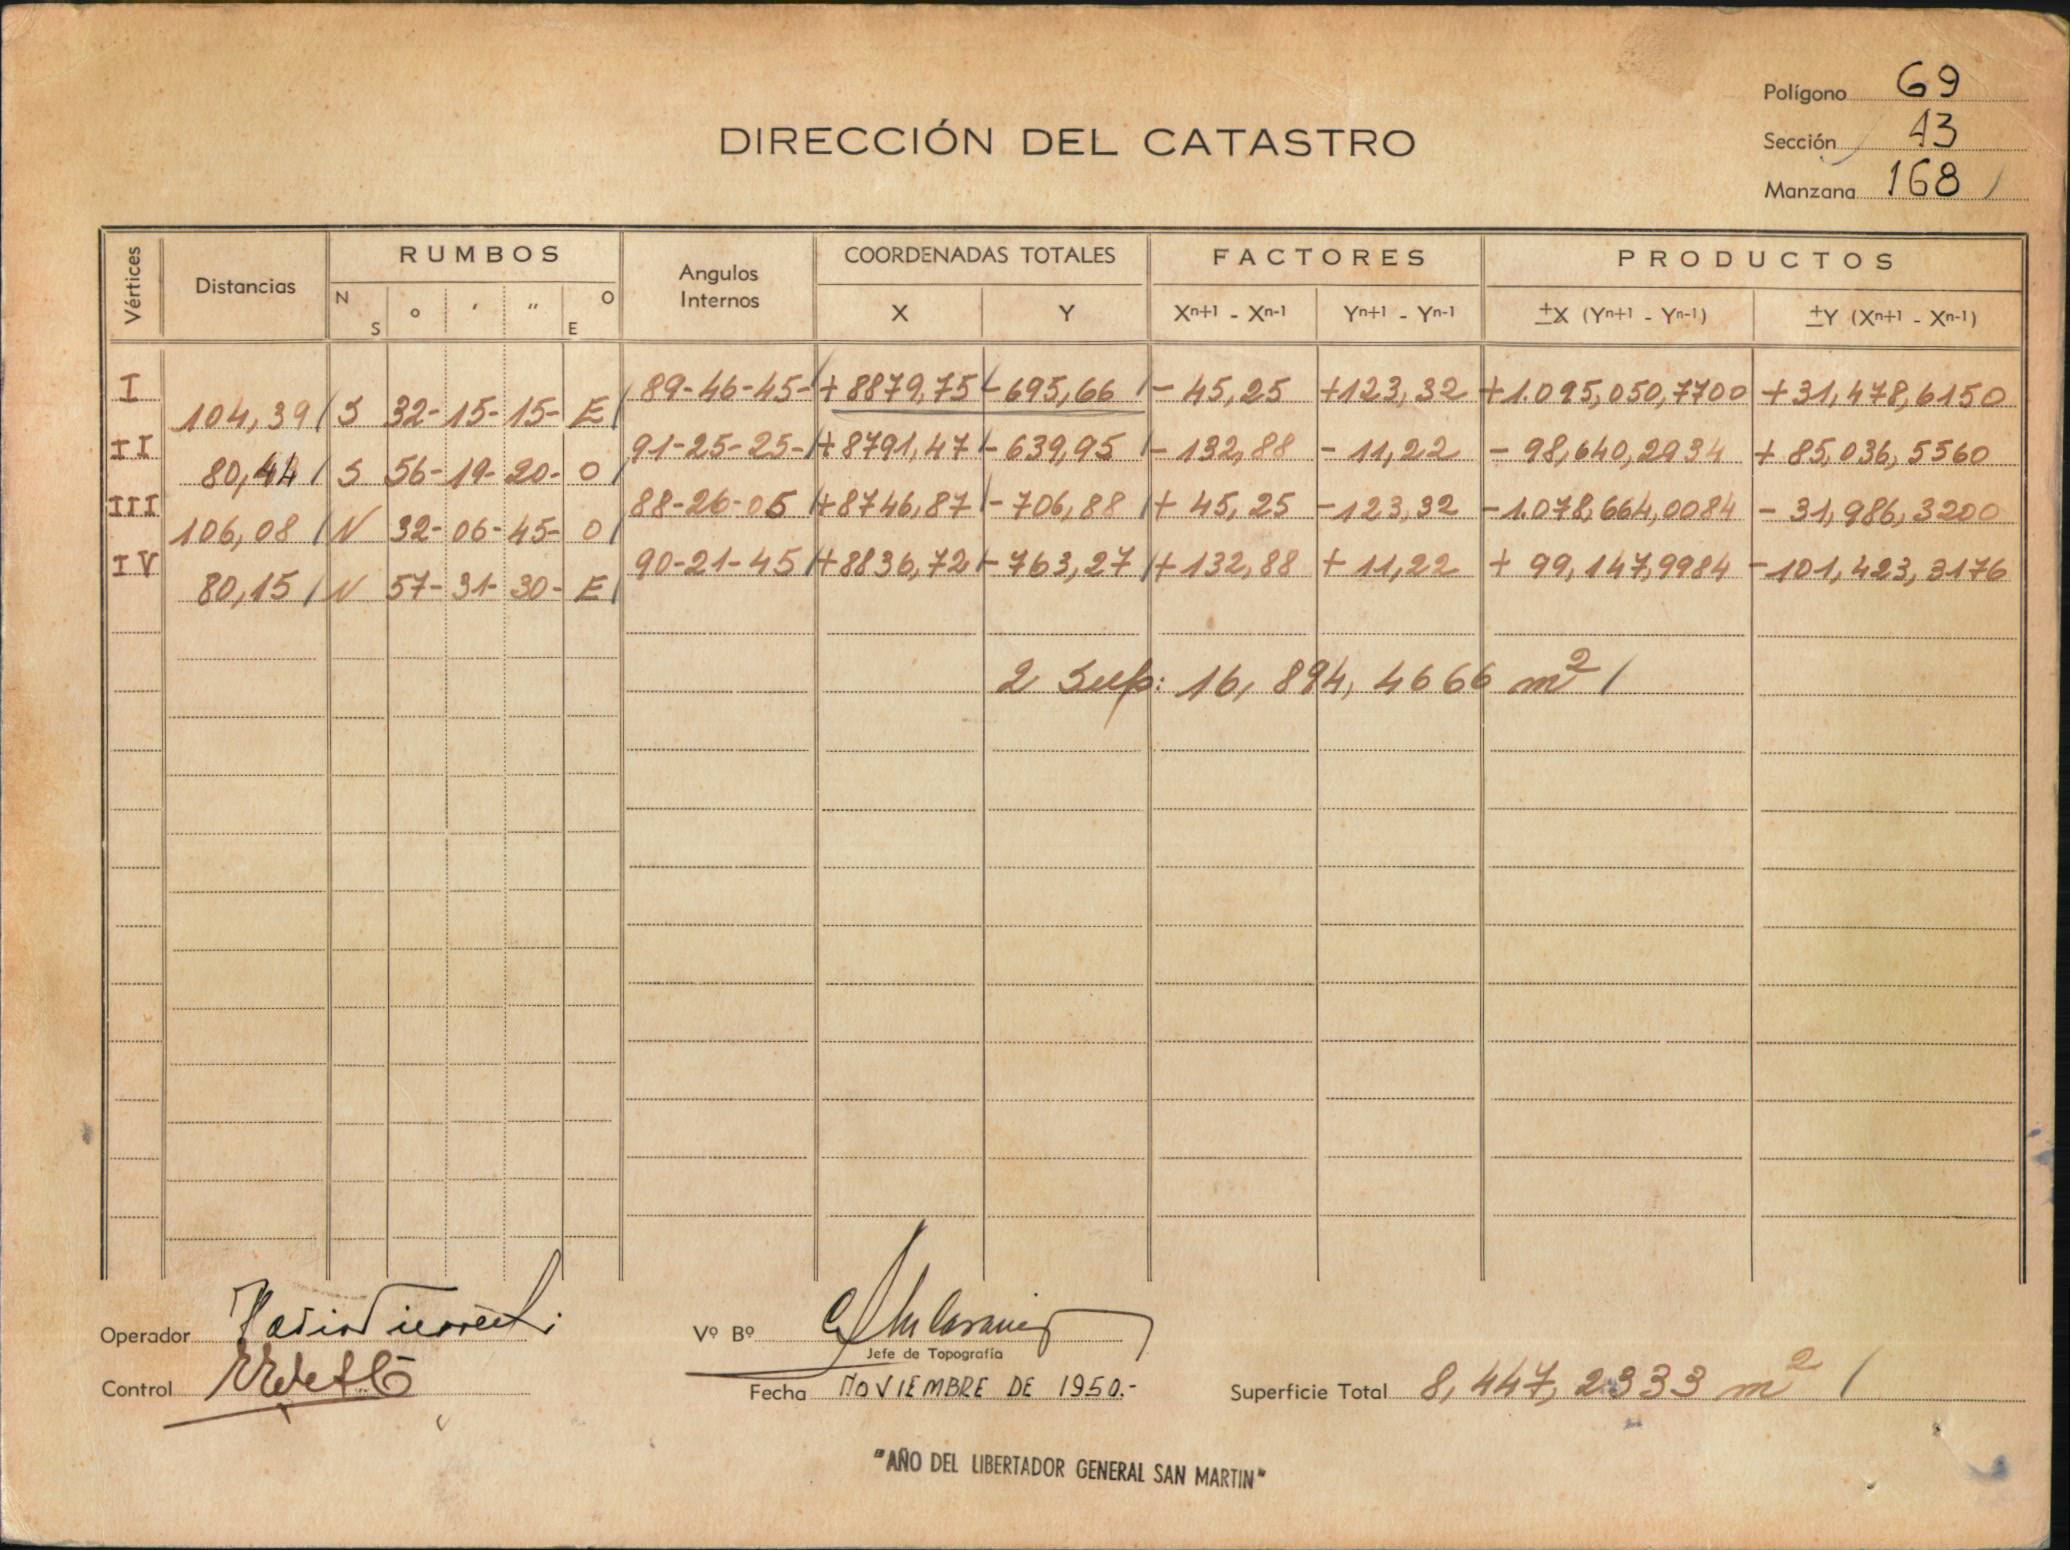 Polígono 69
DIRECCIÓN DEL CATASTRO
Sección 43
Manzana 168
Vértices
Distancias
RUMBOS
N S ° ′ ″ O E
Angulos Internos
COORDENADAS TOTALES
X Y
FACTORES
Xn+1 - Xn-1 Yn+1 - Yn-1
PRODUCTOS
±X (Yn+1 - Yn-1) ±Y (Xn+1 - Xn-1)
I 89-46-45- +8879,75 -695,66 -45,25 +123,32 +1.095,050,7700 +31,478,6150
104,39 S 32-15-15- E
II 91-25-25- +8791,47 -639,95 -132,88 -11,22 -98,640,2934 +85,036,5560
80,44 S 56-19-20- O
III 88-26-05 +8746,87 -706,88 +45,25 -123,32 -1.078,664,0084 -31,986,3200
106,08 N 32-06-45- O
IV 90-21-45 +8836,72 -763,27 +132,88 +11,22 +99,147,9984 -101,423,3176
80,15 N 57-31-30- E
2 Sup: 16,894,4666 m2
Operador
Vº Bº
Jefe de Topografía
Control
Fecha NOVIEMBRE DE 1950.-
Superficie Total 8,447,2333 m2
"AÑO DEL LIBERTADOR GENERAL SAN MARTIN"